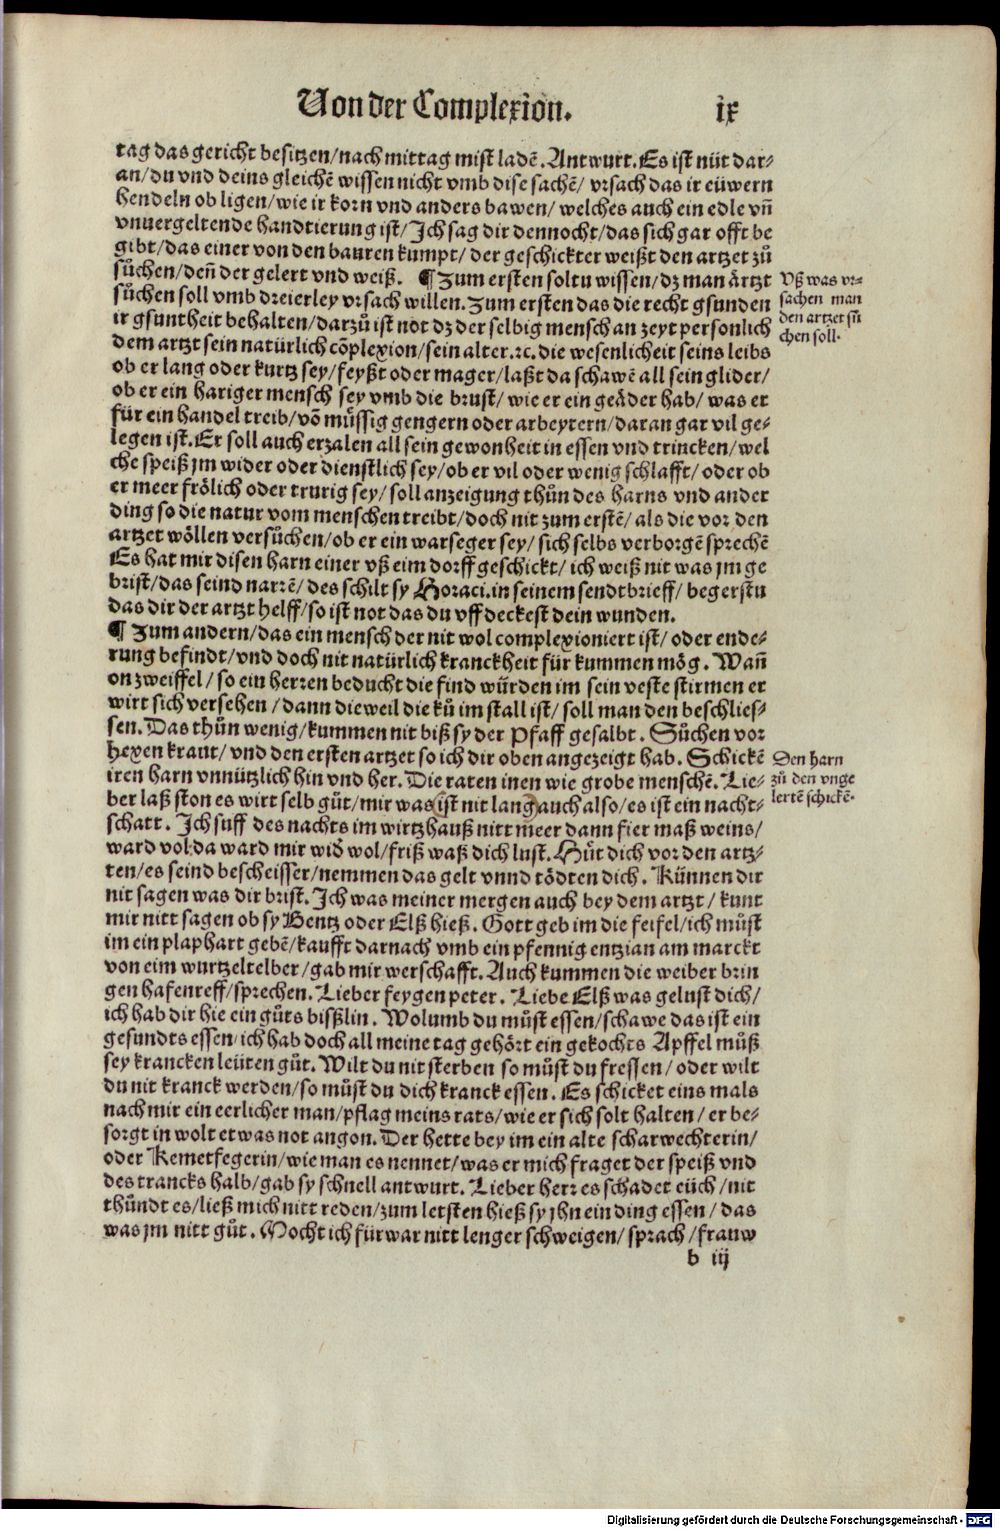 Von der Complexion. ix
tag das gericht besitzen/nach mittag mist ladē. Antwurt. Es ist nüt dar⸗
an/du vnd deins gleichē wissen nicht vmb dise sachē/ vrsach das ir eüwern
hendeln ob ligen/wie ir korn vnd anders bawen/ welches auch ein edle vn̄
vnuergeltende handtierung ist/Ich sag dir dennocht/das sich gar offt be
gibt/das einer von den bauren kumpt/ der geschickter weißt den artzet zů
sůchen/den̄ der gelert vnd weiß. ¶ Zum ersten soltu wissen/dz man ärtzt
sůchen soll vmb dreierley vrsach willen. Zum ersten das die recht gsunden
ir gsuntheit behalten/darzů ist not dz der selbig mensch an zeyt personlich
dem artzt sein natürlich cōplexion/sein alter.⁊c. die wesenlicheit seins leibs
ob er lang oder kurtz sey/feyßt oder mager/laßt da schawē all sein glider/
ob er ein hariger mensch sey vmb die brust/ wie er ein geäder hab/ was er
für ein handel treib/vō müssig gengern oder arbeytern/daran gar vil ge⸗
legen ist. Er soll auch erzalen all sein gewonheit in essen vnd trincken/wel
che speiß jm wider oder dienstlich sey/ob er vil oder wenig schlafft/oder ob
er meer frölich oder trurig sey/soll anzeigung thůn des harns vnd ander
ding so die natur vom menschen treibt/doch nit zum erstē/als die vor den
artzet wöllen versůchen/ob er ein warseger sey/sich selbs verborgē sprechē
Es hat mir disen harn einer vß eim dorff geschickt/ ich weiß nit was jm ge
brist/das seind narrē/ des schilt sy Horaci. in seinem sendtbrieff/ begerstu
das dir der artzt helff/so ist not das du vff deckest dein wunden.
¶ Zum andern/das ein mensch der nit wol complexioniert ist/oder ende⸗
rung befindt/vnd doch nit natürlich kranckheit für kummen mög. Wan̄
on zweiffel/so ein herren beducht die find würden im sein veste stirmen er
wirt sich versehen /dann dieweil die ků im stall ist/ soll man den beschlies⸗
sen. Das thůn wenig/kummen nit biß sy der Pfaff gesalbt. Sůchen vor
hexen kraut/ vnd den ersten artzet so ich dir oben angezeigt hab. Schickē
iren harn vnnützlich hin vnd her. Die raten inen wie grobe menschē. Lie⸗
ber laß ston es wirt selb gůt/mir was ist nit lang auch also/es ist ein nacht⸗
schatt. Ich suff des nachts im wirtzhauß nitt meer dann fier maß weins/
ward vol da ward mir wid̄ wol/friß waß dich lust. Hüt dich vor den artz⸗
ten/es seind bescheisser/nemmen das gelt vnnd tödten dich. Künnen dir
nit sagen was dir brist. Ich was meiner mergen auch bey dem artzt / kunt
mir nitt sagen ob sy Hentz oder Elß hieß. Gott geb im die feifel/ich můst
im ein plaphart gebē/kaufft darnach vmb ein pfennig entzian am marckt
von eim wurtzeltelber/gab mir werschafft. Auch kummen die weiber brin
gen hafenreff/sprechen. Lieber feygen peter. Liebe Elß was gelust dich/
ich hab dir hie ein gůts bisßlin. Wolumb du můst essen/schawe das ist ein
gesundts essen/ich hab doch all meine tag gehört ein gekochts Apffel můß
sey krancken leüten gůt. Wilt du nit sterben so můst du fressen/ oder wilt
du nit kranck werden/so můst du dich kranck essen. Es schicket eins mals
nach mir ein eerlicher man/pflag meins rats/wie er sich solt halten/ er be⸗
sorgt in wolt etwas not angon. Der hette bey im ein alte scharwechterin/
oder Kemetfegerin/wie man es nennet/was er mich fraget der speiß vnd
des trancks halb/gab sy schnell antwurt. Lieber herr es schadet eüch /nit
thůndt es/ließ mich nitt reden/zum letsten hieß sy jhn ein ding essen/ das
was jm nitt gůt. Mocht ich fürwar nitt lenger schweigen/ sprach /frauw
b iij
Vß was vr⸗
sachen man
den artzet sů
chen soll.
Den harn
zů den vnge
lertē schickē.
Digitalisierung gefördert durch die Deutsche Forschungsgemeinschaft - DFG